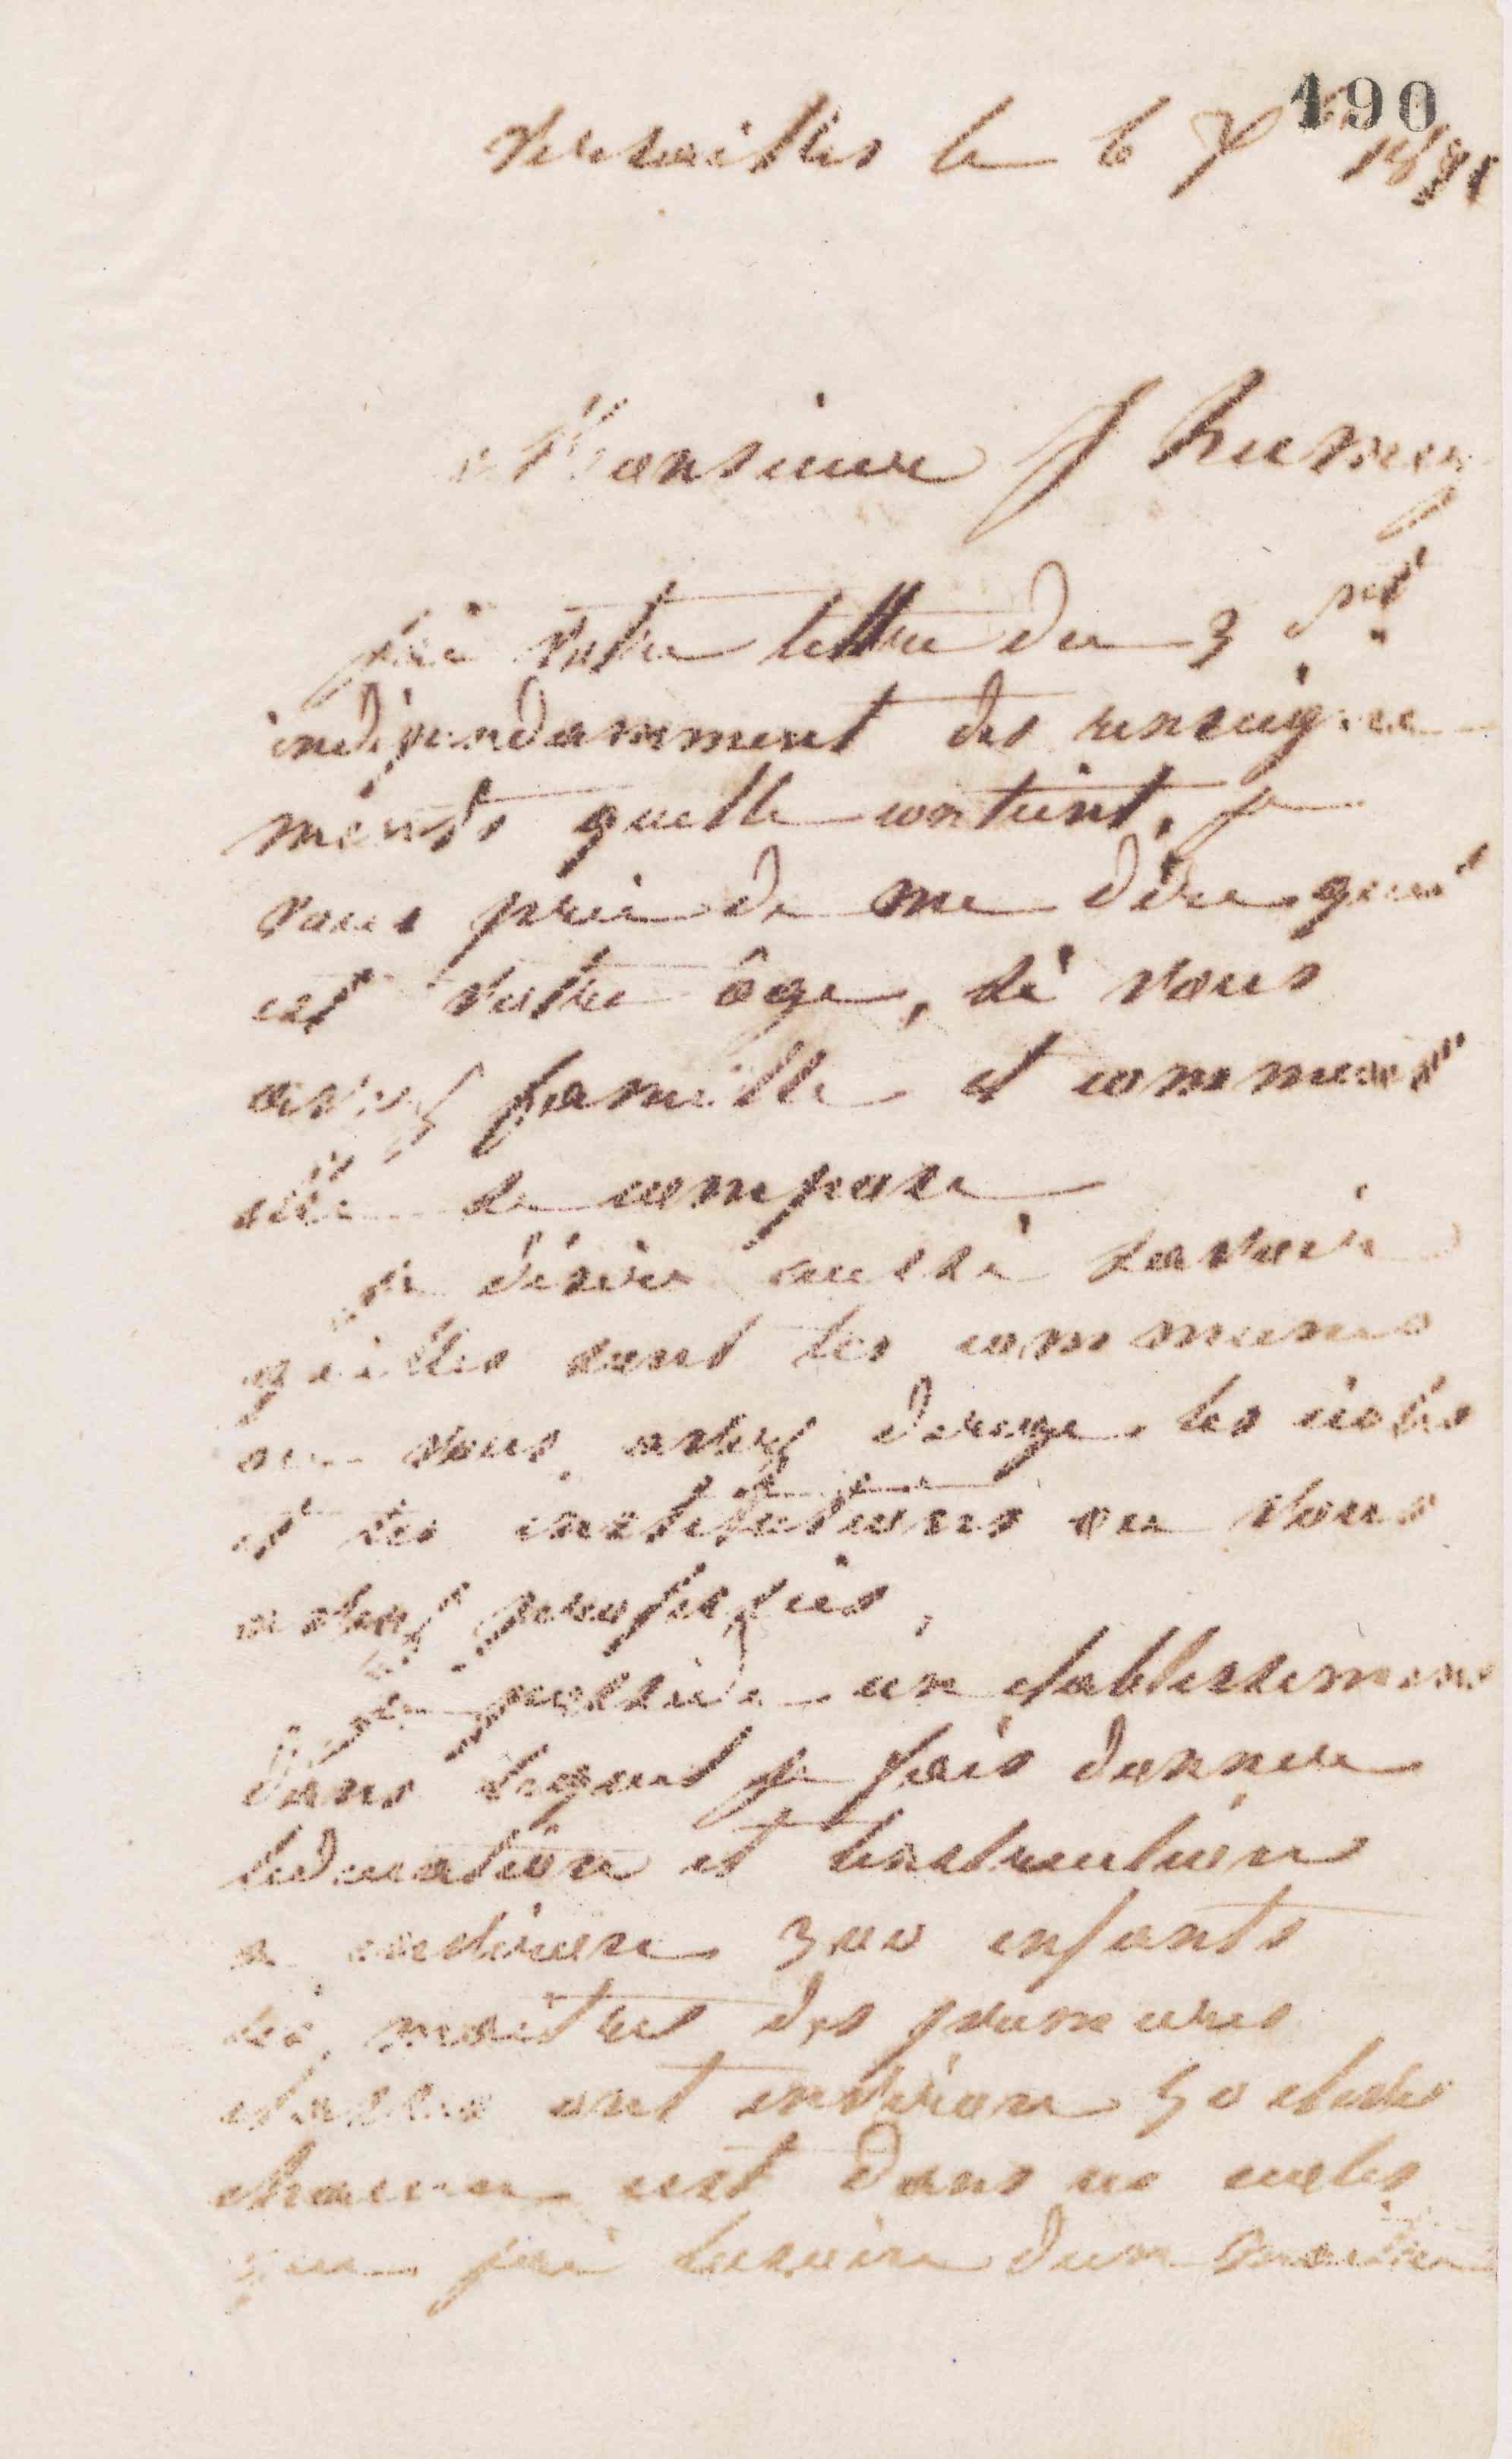 190
Versailles le 6 7bre 1881
Monsieur Jhumery
jai votre lettre du 3 ct
independamment des renseigne
ments quelle contient, je
vous prie de me dire quel
est votre âge, si vous
avez famille et comment
elle se compose
je desire aussi savoir
quelles sont les communes
ou vous avez dirige les écoles
et les institutions ou vous
avez professées,
je possède un etablissement
dans lequel je fais donner
leducation et linstruction
a environ 300 enfants
les maitres des premieres
classes ont environ 50 eleves
chacun cest dans ces ecoles
que jai besoin dun maitre